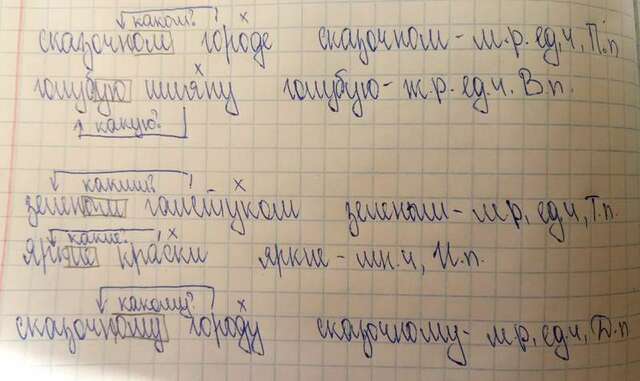 каком? х
сказочном городе сказочном - м.р. ед.ч, П.п
х
голубую шляпу голубую - ж.р. ед.ч. В.п.
какую?
каким? х
зеленым галстуком зеленым - м.р, ед.ч, Т.п.
какие? х
яркие краски яркие - мн.ч, И.п.
какому? х
сказочному городу сказочному - м.р, ед.ч, Д.п